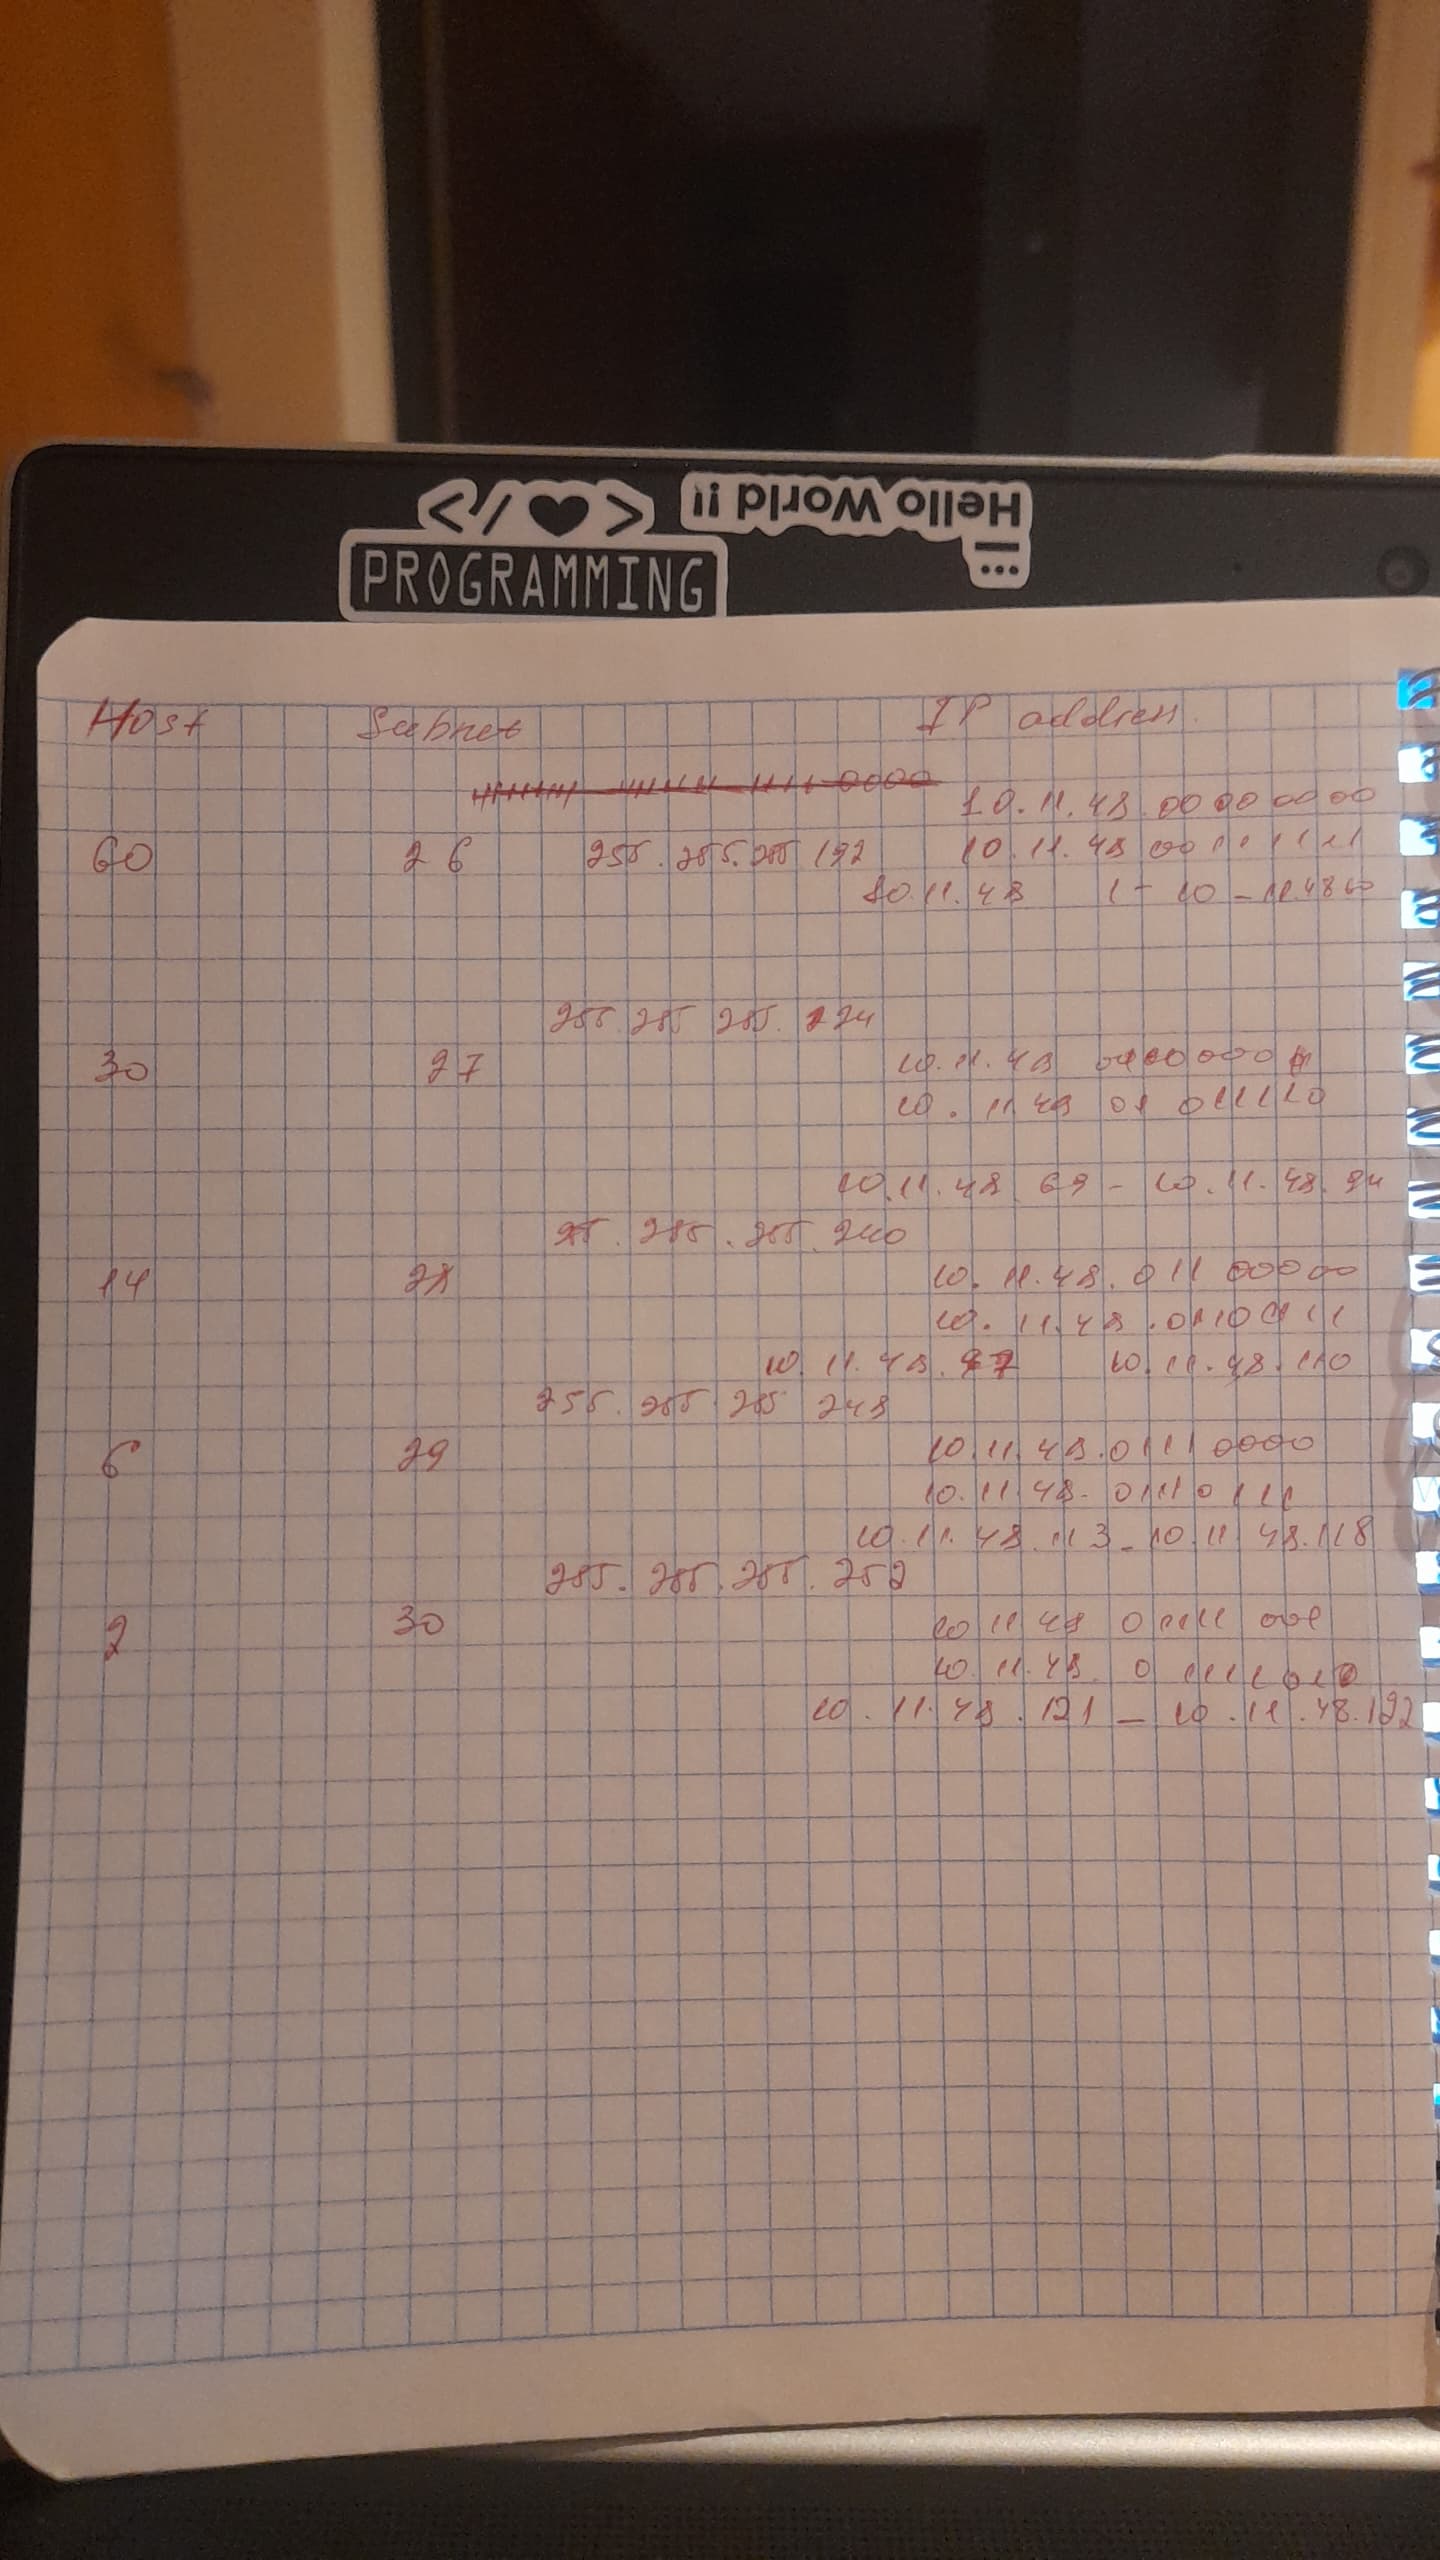 Hello World !!
</>
PROGRAMMING
Host Subnet IP address
10.11.48.0000 0000
60 26 255.255.255 192 10.11.48 00111111
10.11.48 1 - 10 - 11.48 60
255.255 255. 224
30 27
10.11.48 01 011110
10.11.48.69 - 10.11.48.94
255.255.255.240
14 28 10.11.48.011 00000
10.11.48.
10.11.48.97 10.11.48.110
255.255.255 248
6 29 10.11.48.0111 0000
10.11.48.01110111
10.11.48.113 - 10.11 48.118
255.255.255.252
2 30 10 11 48 01111 001
10.11.48. 0 1111 010
10.11.48.121 - 10.11.48.122